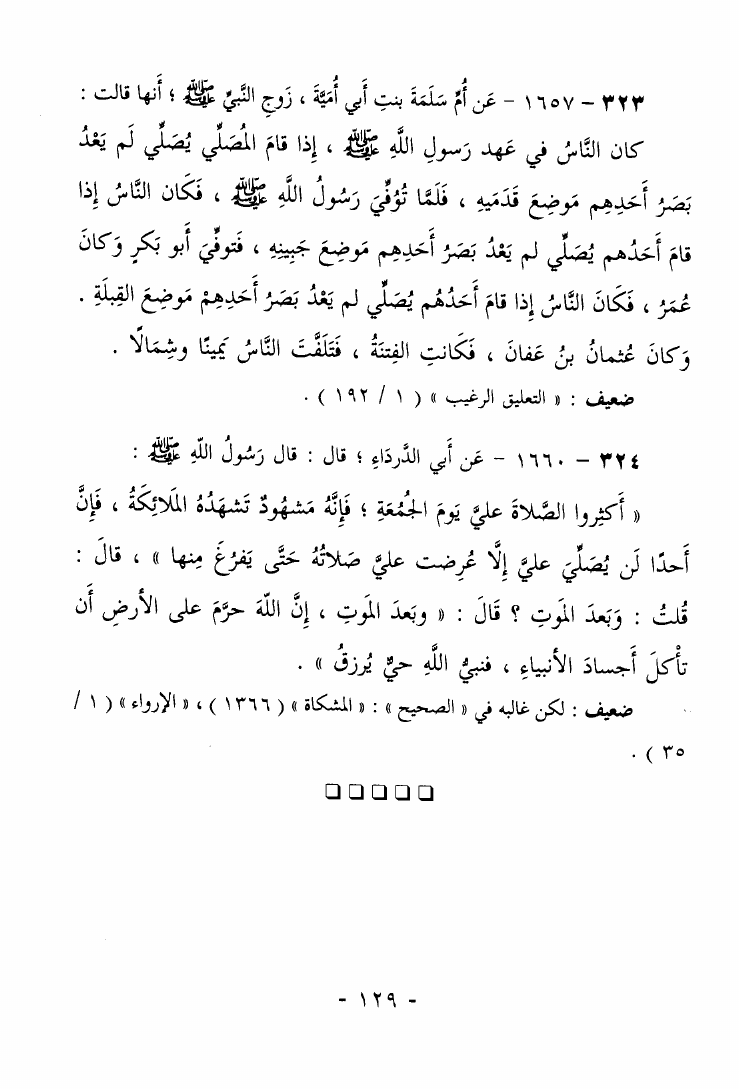 ٣٢٣ – ١٦٥٧ – عَن أُمِّ سَلَمَةَ بنتِ أَبي أُمَيَّةَ ، زَوجِ النَّبيِّ ﷺ ؛ أَنها قالت :
كان النَّاسُ في عَهد رَسولِ اللَّهِ ﷺ ، إِذا قامَ المُصَلِّي يُصَلِّي لَم يَعْدُ
بَصَرُ أَحَدِهِم مَوضِعَ قَدَمَيهِ ، فَلَمَّا تُوُفِّيَ رَسُولُ اللَّهِ ﷺ ، فَكَان النَّاسُ إِذا
قامَ أَحَدُهم يُصَلِّي لم يَعْدُ بَصَرُ أَحَدِهِم مَوضِعَ جَبِينِهِ ، فَتوفِّيَ أَبو بَكرٍ وَكانَ
عُمَرُ ، فَكَانَ النَّاسُ إِذا قامَ أَحَدُهُم يُصَلِّي لم يَعْدُ بَصَرُ أَحَدِهِمْ مَوضِعَ القِبلَةِ .
وَكانَ عُثمانُ بنُ عَفانَ ، فَكَانتِ الفِتنَةُ ، فَتَلَفَّتَ النَّاسُ يَمِينًا وشِمَالًا .
ضعيف : « التعليق الرغيب » ( ١ / ١٩٢ ) .
٣٢٤ – ١٦٦٠ – عَن أَبي الدَّردَاءِ ؛ قال : قال رَسُولُ اللّهِ ﷺ :
« أَكثِروا الصَّلاةَ عليَّ يَومَ الجُمُعَةِ ؛ فَإِنَّهُ مَشهُودٌ تَشهَدُهُ المَلائِكَةُ ، فَإِنَّ
أَحدًا لَن يُصَلِّيَ عليَّ إِلَّا عُرِضت عليَّ صَلاتُهُ حَتَّى يَفرُغَ مِنها » ، قالَ :
قُلتُ : وَبَعدَ المَوتِ ؟ قَالَ : « وبَعدَ المَوتِ ، إِنَّ اللّهَ حرَّمَ على الأَرضِ أَن
تأْكلَ أَجسادَ الأنبياءِ ، فنبيُّ اللَّهِ حيٌّ يُرزقُ » .
ضعيف : لكن غالبه في « الصحيح » : « المشكاة » ( ١٣٦٦ ) ، « الإرواء » ( ١ /
٣٥ ) .
- ١٢٩ -